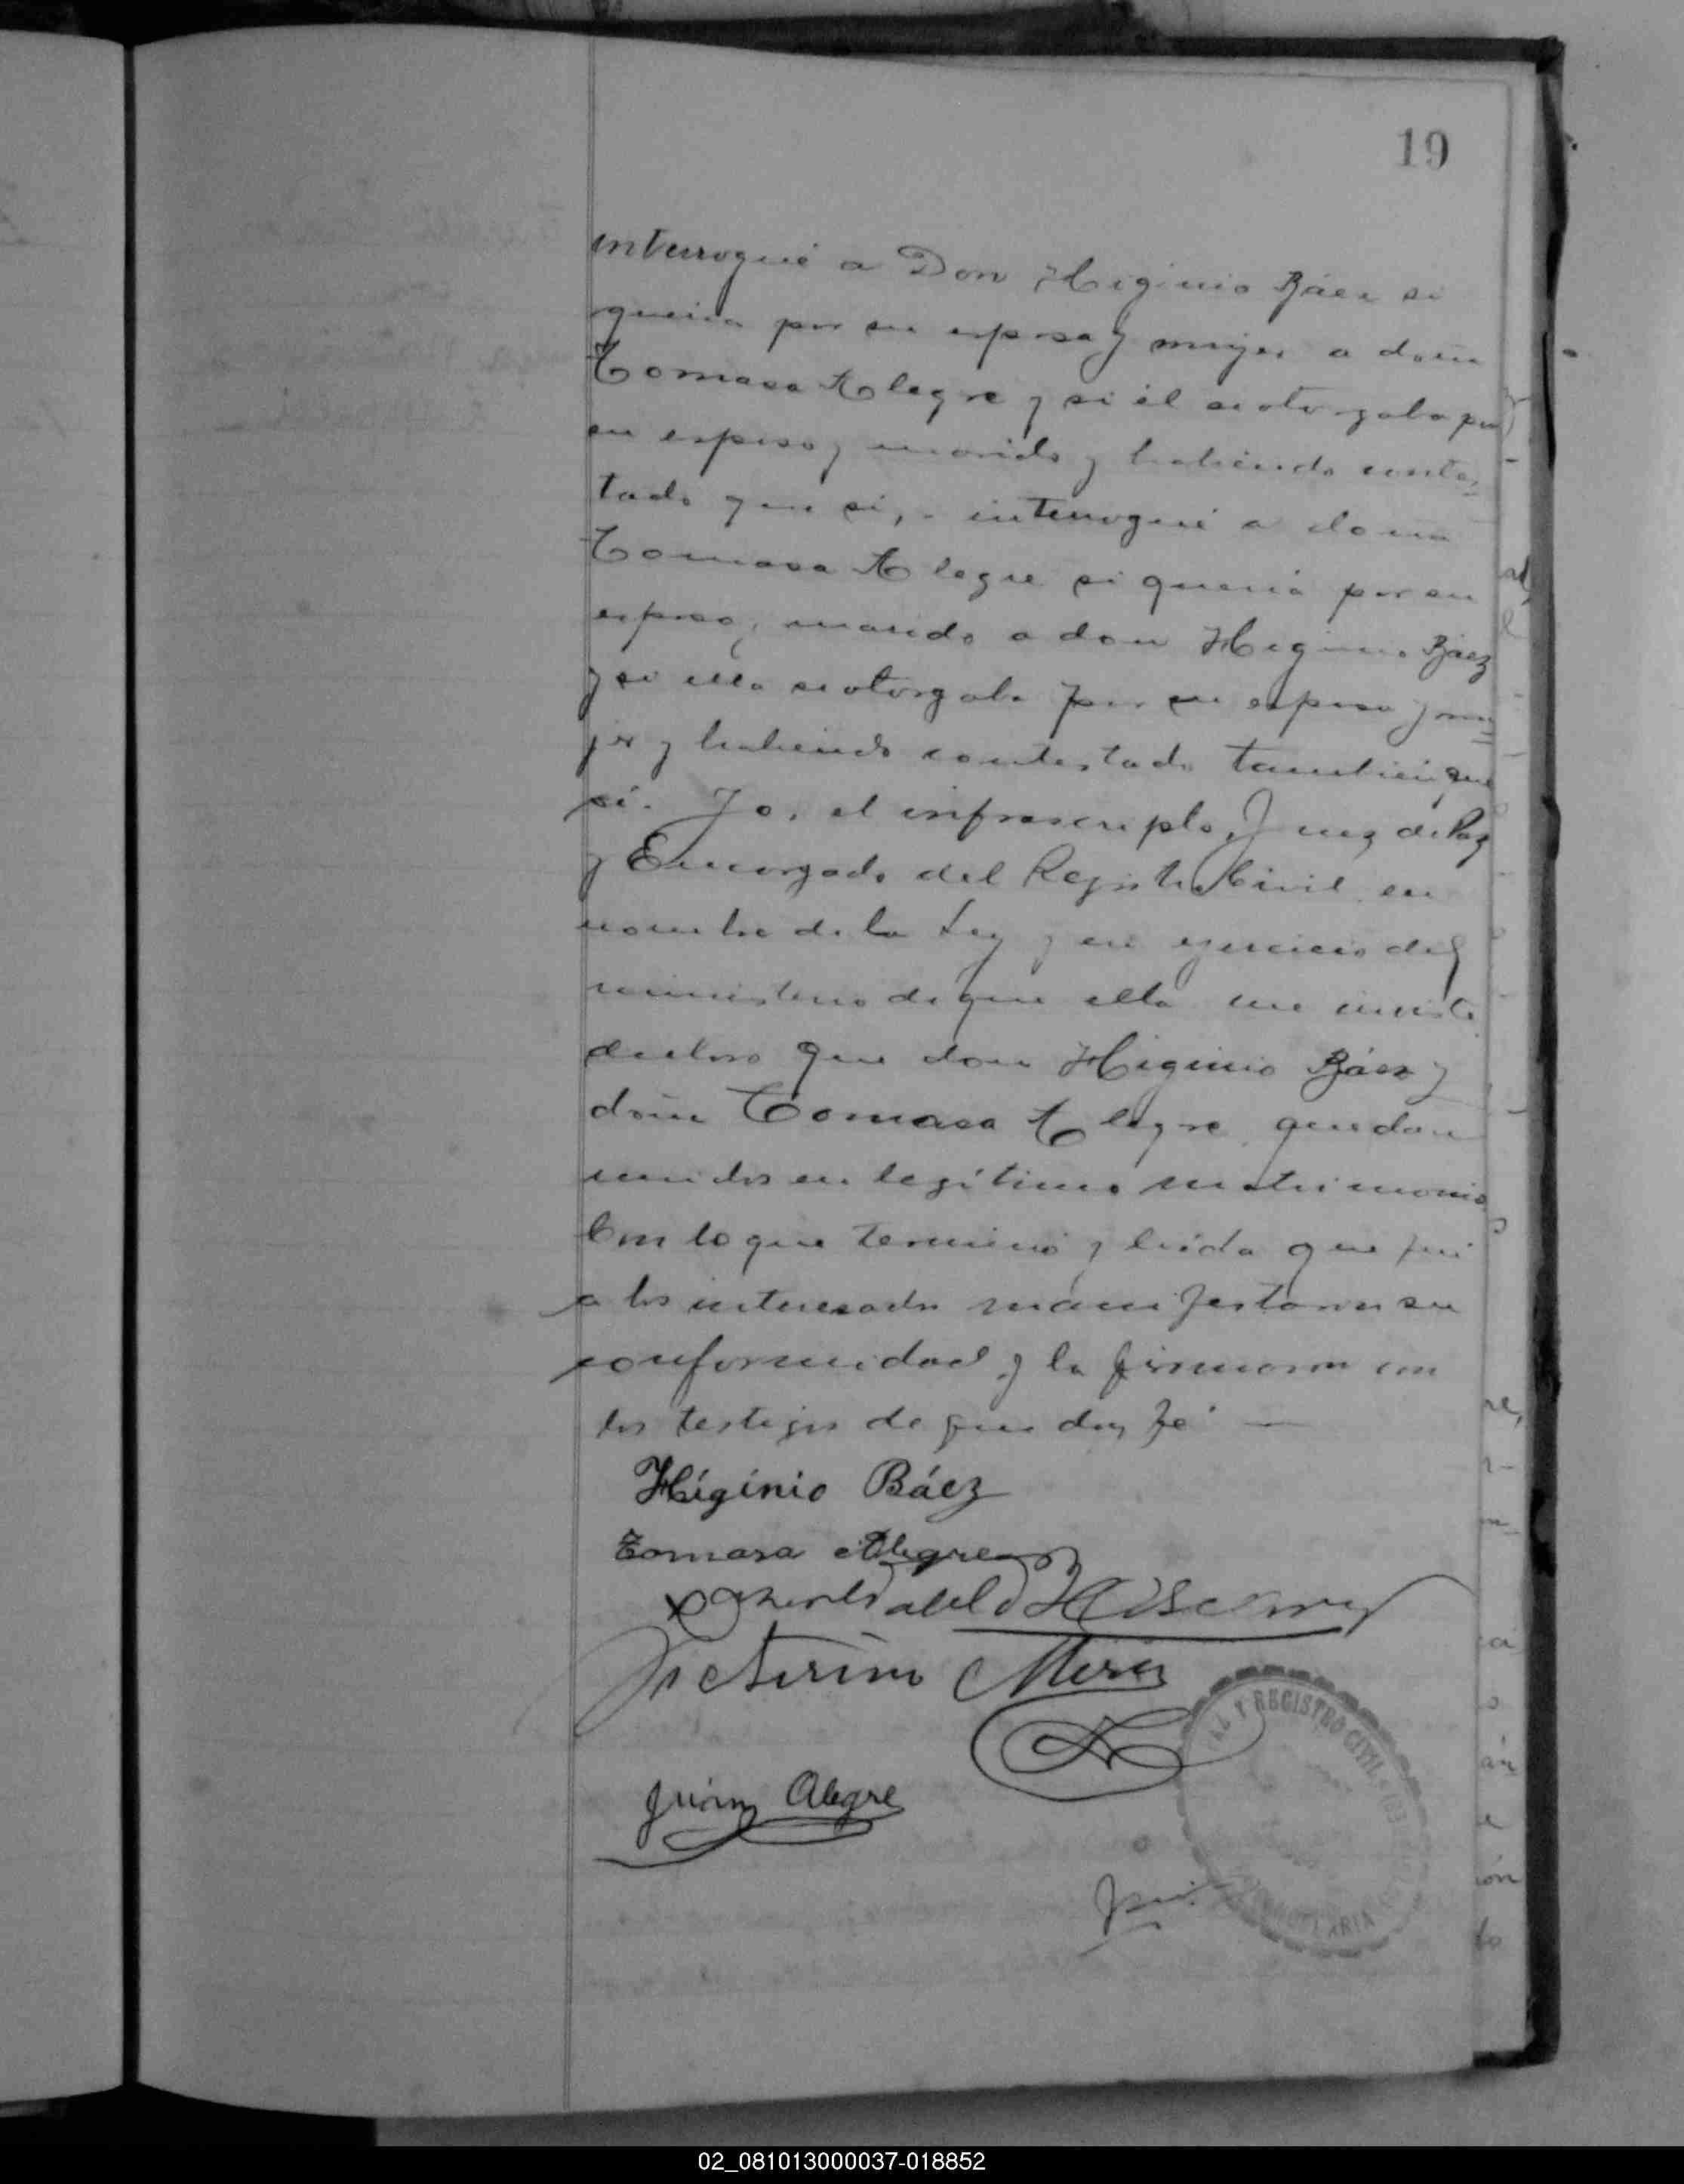 19
interrogué a Don Higinio Báez si
queria por su esposa y mujer a doña
Tomasa Alegre y si él se otorgaba por
su esposo y marido y habiendo contes=
tado que si, - interrogué a doña
Tomasa Alegre si queria por su
esposo y marido a don Higinio Báez
y si ella se otorgaba por su esposa y mu=
jer y habiendo contestado tambien que
sí. Yo, el infrascripto, Juez de Paz
y Encargado del Registro Civil, en
nombre de la Ley y en ejercicio del
ministerio de que ella me inviste
declaro que don Higinio Báez y
doña Tomasa Alegre, quedan
unidos en legítimo matrimonio
Con lo que terminó y leida que fué
a los interesados manifestaron su
conformidad y la firmaron con
los testigos de que doy fé —
Higinio Báez
Tomasa Alegre
Juan Alegre
REGISTRO CIVIL
02_081013000037-018852